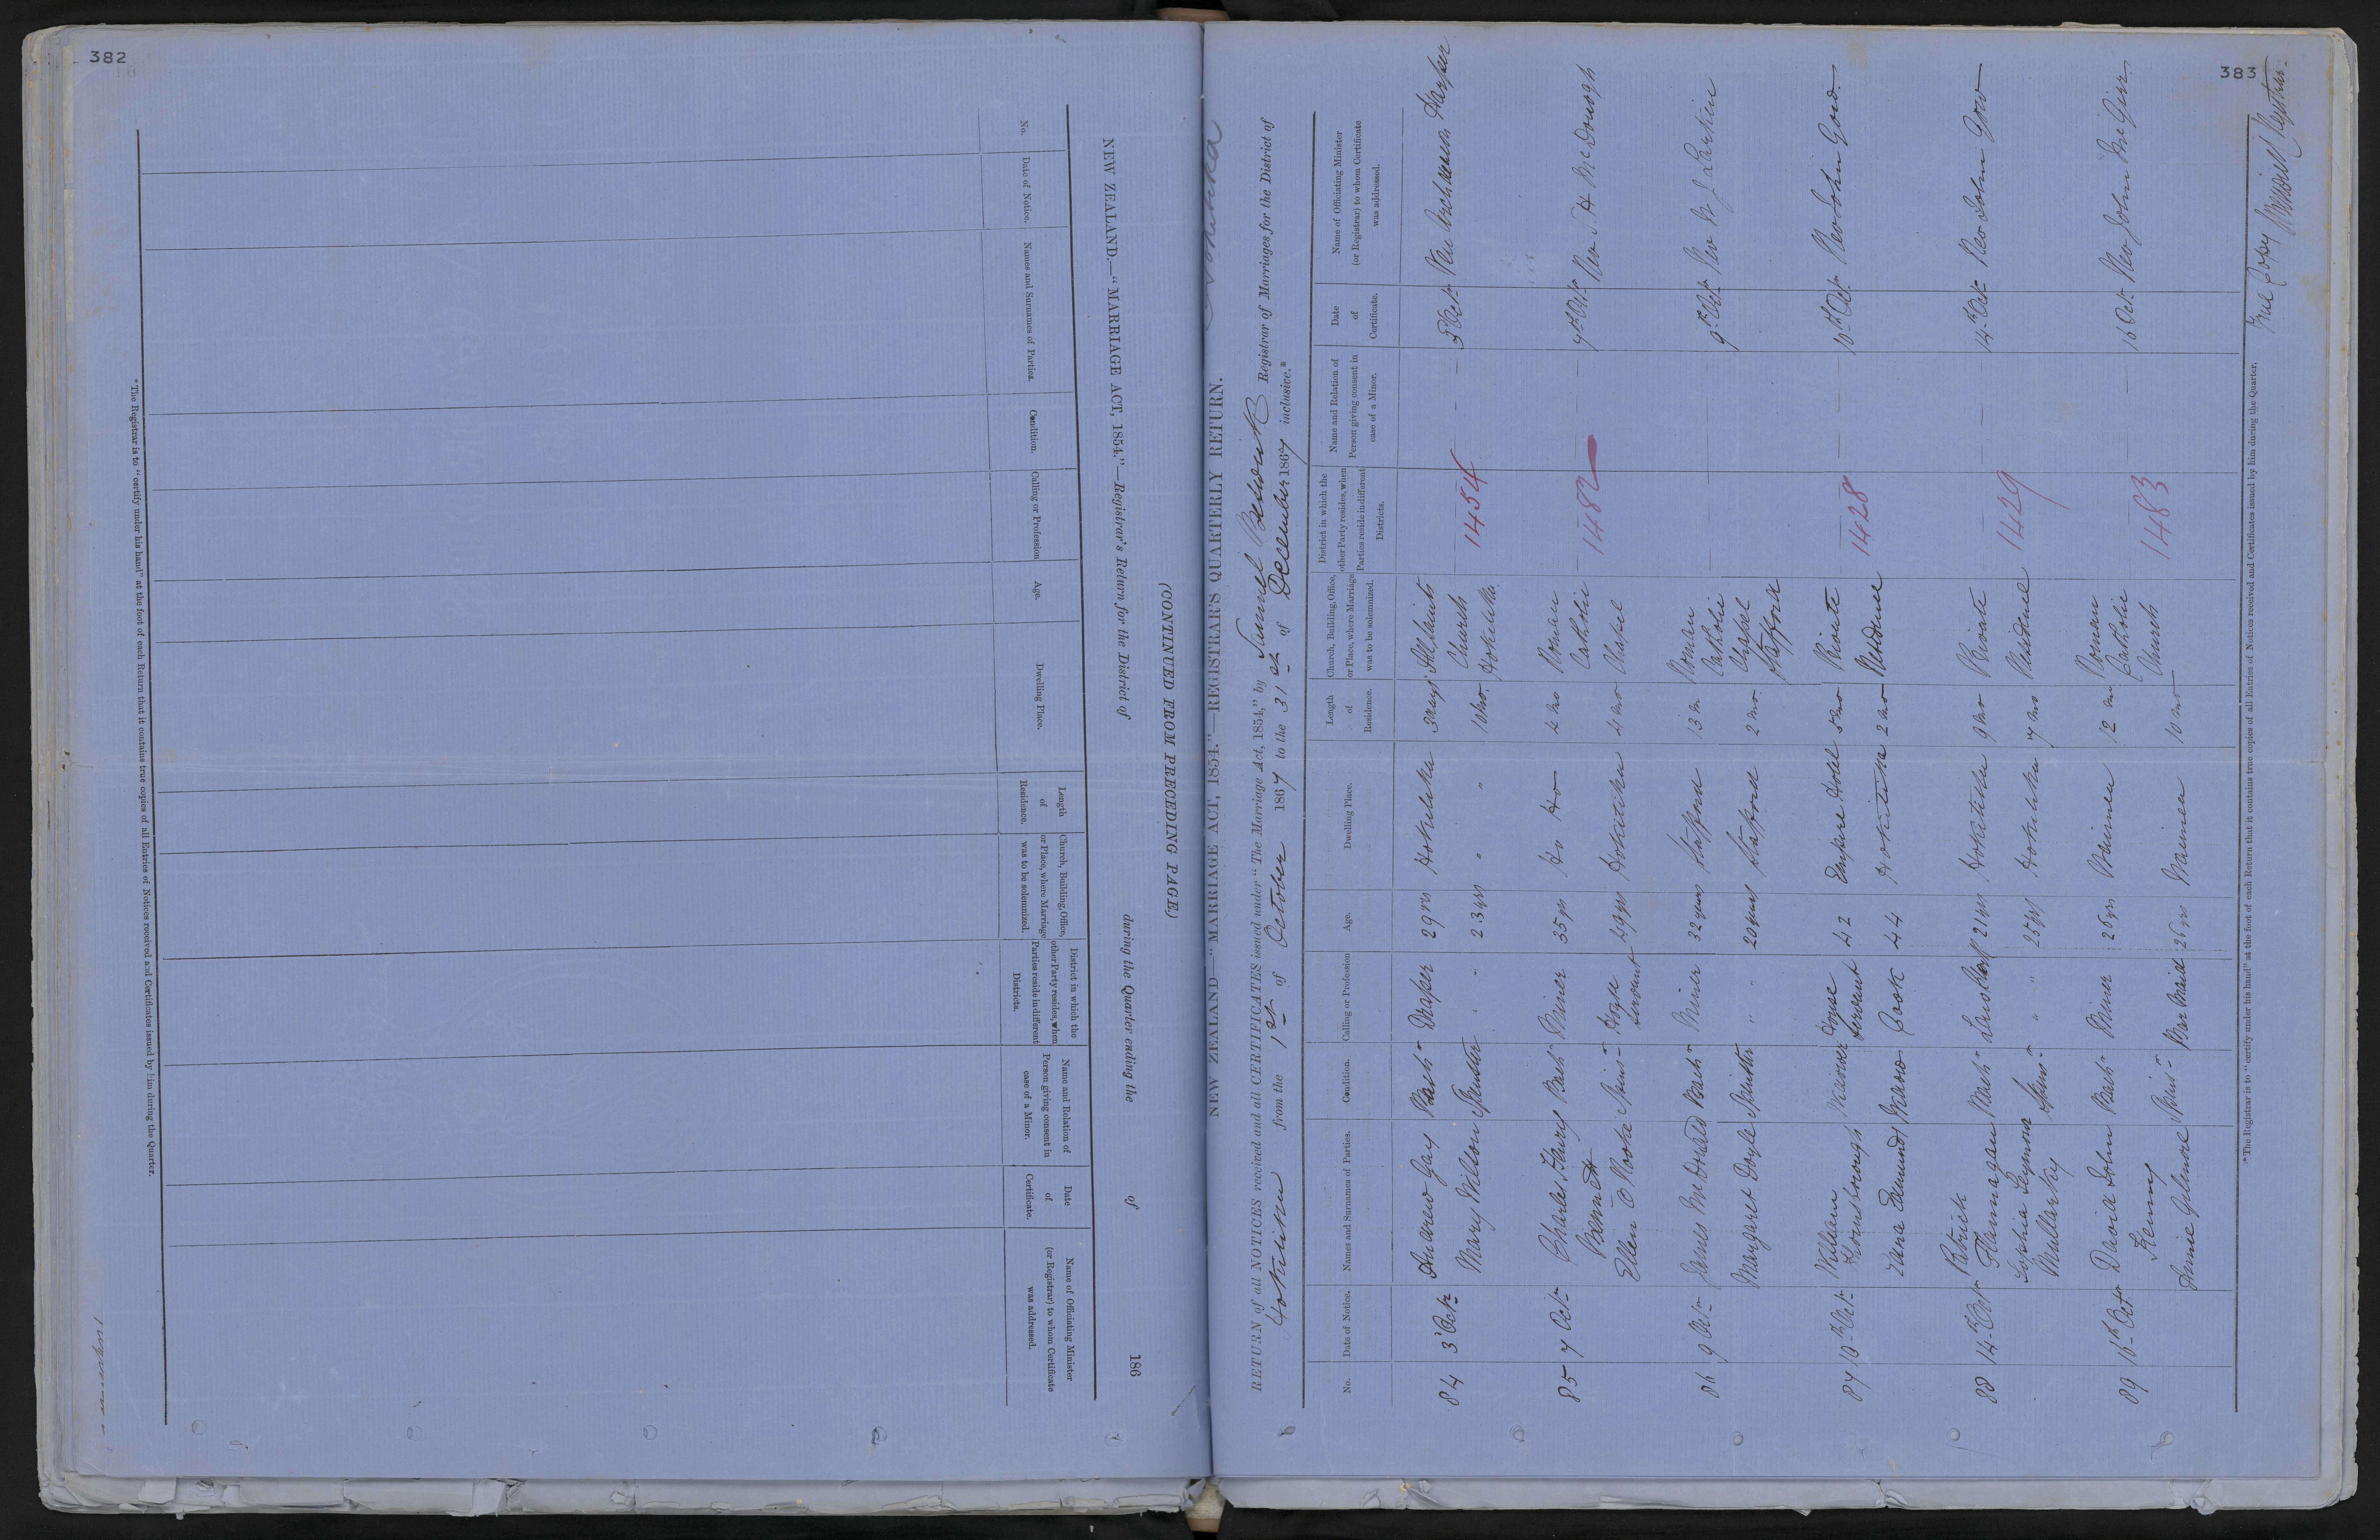 382
(CONTINUED FROM PRECEDING PAGE.)
NEW ZEALAND.—"MARRIAGE ACT, 1854."—Registrar's Return for the District of during the Quarter ending the of 186
No.
Date of Notice.
Names and Surnames of Parties.
Condition.
Calling or Profession
Age.
Dwelling Place.
Length
of
Residence.
Church, Building, Office,
or Place, where Marriage
was to be solemnized.
District in which the
other Party resides, when
Parties reside in different
Districts.
Name and Relation of
Person giving consent in
case of a Minor.
Date
of
Certificate.
Name of Officiating Minister
(or Registrar) to whom Certificate
was addressed.
*The Registrar is to "certify under his hand" at the foot of each Return that it contains true copies of all Entries of Notices received and Certificates issued by him during the Quarter.
383
Hokitika
NEW ZEALAND—"MARRIAGE ACT, 1854."—REGISTRAR'S QUARTERLY RETURN.
RETURN of all NOTICES received and all CERTIFICATES issued under "The Marriage Act, 1854," by Samuel Registrar of Marriages for the District of
Hokitika from the 1st of October 1867 to the 31st of December 1867 inclusive.*
No.
Date of Notice.
Names and Surnames of Parties.
Condition.
Calling or Profession
Age.
Dwelling Place.
Length
of
Residence.
Church, Building, Office,
or Place, where Marriage
was to be solemnized.
District in which the
other Party resides, when
Parties reside in different
Districts.
Name and Relation of
Person giving consent in
case of a Minor.
Date
of
Certificate.
Name of Officiating Minister
(or Registrar) to whom Certificate
was addressed.
84 3 Octr Andrew Gay Bachr Draper 29 yrs Hokitika 3 days All Saints — — 3 Octr Rev Archdeacon Harper
Mary Wilson Spinster " " 23 yrs " " 10 mo. Church 1454
Hokitika
85 7 Octr Charles Henry Bachr Miner 35 yrs Do Do 4 mo Roman — — 7th Octr Rev T. H. McDonogh
Bennett Catholic 1482
Ellen O Rooke Spinr House Servant 29 yrs Hokitika 4 mo Chapel
86 9 Octr James McDonald Bachr Miner 32 years Stafford 13 m Roman — — 9th Octr Rev W J Larkin
Catholic
Margaret Doyle Spinster " " 20 years Stafford 2 mo. Chapel
Stafford
87 10th Octr William Widower House Servant 42 Empire Hotel 5 mo Private — — 10th Oct. Rev John Gow.
Hornsborough 1428
Jane Edmunds Widow Cook 44 Hokitika 2 mo Residence
88 14th Octr Patrick Bachr 21 yrs Hokitika 9 mo Private — — 14th Oct Rev John Gow
Flannagan 1429
Sophia Seymour Spinr " " 25 yrs Hokitika 7 mo Residence
Mullarky
89 16th Octr David John Bachr Miner 26 yrs Waimea 12 mo Roman — — 16 Oct Rev John McGirr
Kenny Catholic 1483
Annie Gilmore Spinr Bar Maid 26 yrs Waimea 10 mo Church
*The Registrar is to "certify under his hand" at the foot of each Return that it contains true copies of all Entries of Notices received and Certificates issued by him during the Quarter.
True Copy Registrar.